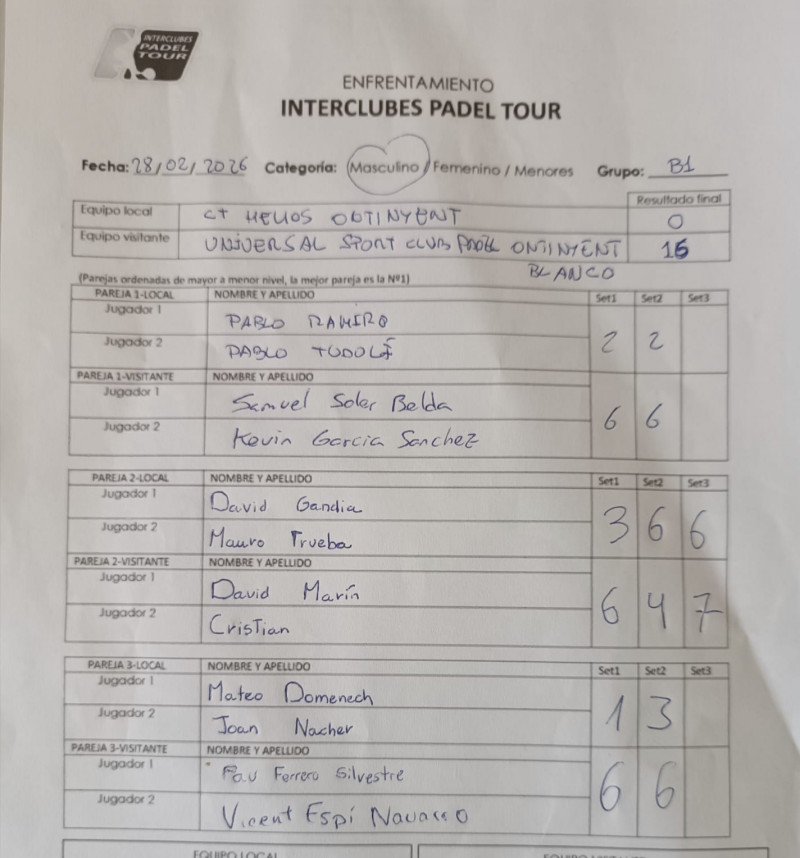 INTERCLUBES
PADEL
TOUR
ENFRENTAMIENTO
INTERCLUBES PADEL TOUR
Fecha: 28/02/2026 Categoría: Masculino / Femenino / Menores Grupo: B1
Resultado final
Equipo local CT HELIOS ONTINYENT 0
Equipo visitante UNIVERSAL SPORT CLUB PADEL ONTINYENT 15
BLANCO
(Parejas ordenadas de mayor a menor nivel, la mejor pareja es la Nº1)
PAREJA 1-LOCAL NOMBRE Y APELLIDO Set1 Set2 Set3
Jugador 1 PABLO RAMIRO
2 2
Jugador 2 PABLO TUDOLÍ
PAREJA 1-VISITANTE NOMBRE Y APELLIDO
Jugador 1 Samuel Soler Belda
6 6
Jugador 2 Kevin Garcia Sanchez
PAREJA 2-LOCAL NOMBRE Y APELLIDO Set1 Set2 Set3
Jugador 1 David Gandia
3 6 6
Jugador 2 Mauro Trueba
PAREJA 2-VISITANTE NOMBRE Y APELLIDO
Jugador 1 David Marín
6 4 7
Jugador 2 Cristian
PAREJA 3-LOCAL NOMBRE Y APELLIDO Set1 Set2 Set3
Jugador 1 Mateo Domenech
1 3
Jugador 2 Joan Nacher
PAREJA 3-VISITANTE NOMBRE Y APELLIDO
Jugador 1 Pau Ferrero Silvestre
6 6
Jugador 2 Vicent Espí Navarro
EQUIPO LOCAL